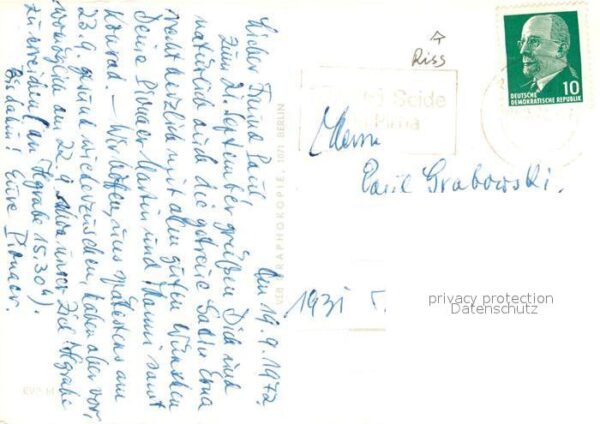 den 19.9.1972
Lieber Freund Paul!
Zum 21. September grüßen Dich und
natürlich auch die getreue Gattin Erna
recht herzlich mit allen guten Wünschen
Deine Pioneer Martin und Hanni samt
Konrad. – Wir hoffen, uns spätestens am
23.9. gesund wiederzusehen, haben aber vor,
womöglich am 22.9. schon unser Ziel
zu erreichen (an Hgrabe 15.30 h).
Bis dahin! Eure Pioneer.
VEB GRAPHOKOPIE, 1071 BERLIN
Riss
Seide
Pirna
DEUTSCHE
DEMOKRATISCHE REPUBLIK
10
Herrn
Paul Grabowski.
1931
privacy protection
Datenschutz